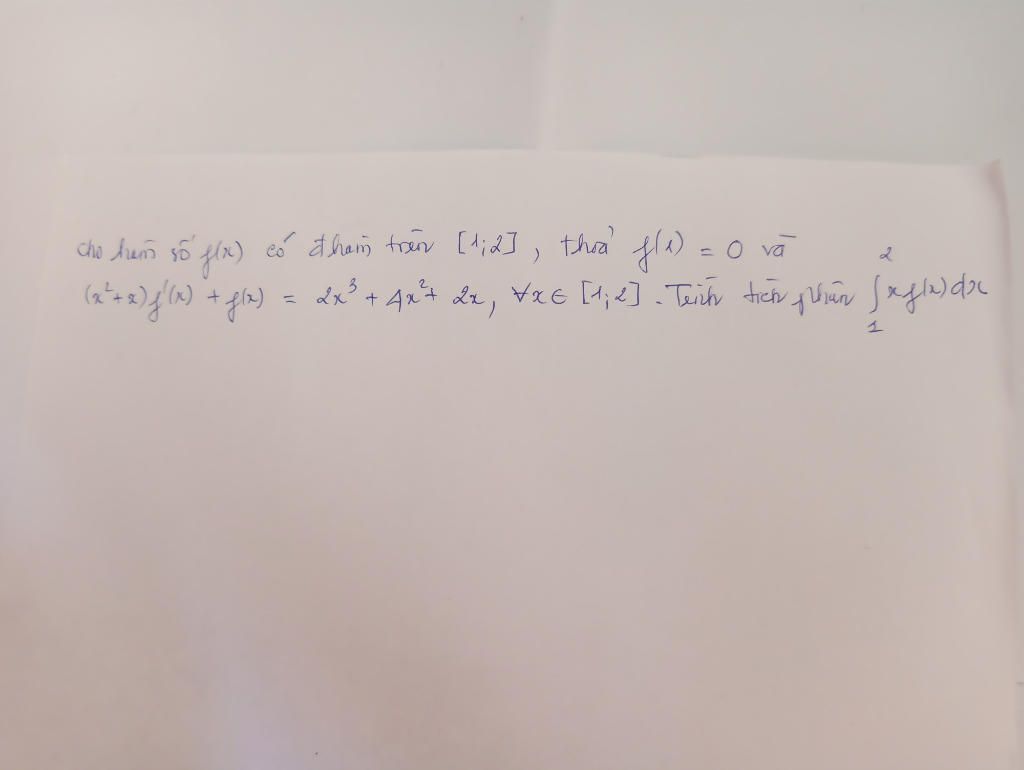 cho hàm số f(x) có đ hàm trên [1;2], thoả f(1) = 0 và
(x²+x)f'(x) + f(x) = 2x³ + 4x² + 2x, ∀x ∈ [1;2]. Tính tích phân ∫₁² x f(x) dx